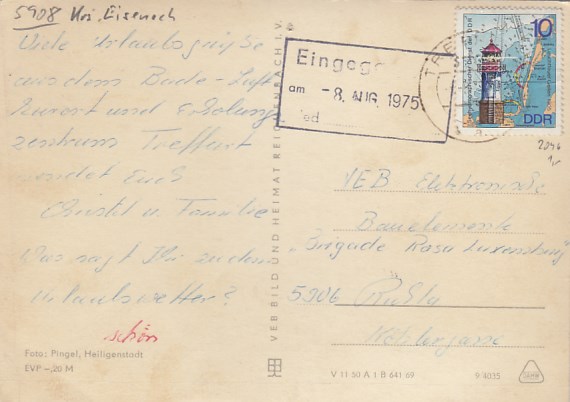 5908 Krs. Eisenach
Viele Urlaubsgrüße
aus dem Bade-Luft
kurort und Erholung
zentrum Treffurt
sendet Euch
Christel u. Familie
Was sagt Ihr zu dem
Urlaubswetter?
schön
Foto: Pingel, Heiligenstadt
EVP -,20 M
VEB BILD UND HEIMAT REICHENBACH I. V.
Eingeg
am - 8. AUG. 1975
ed
TREF
10
DDR
VEB Elektronische
Bauelemente
„Brigade Rosa Luxemburg"
5906 Ruhla
Köhlergasse
V 11 50 A 1 B 641 69
9/4035